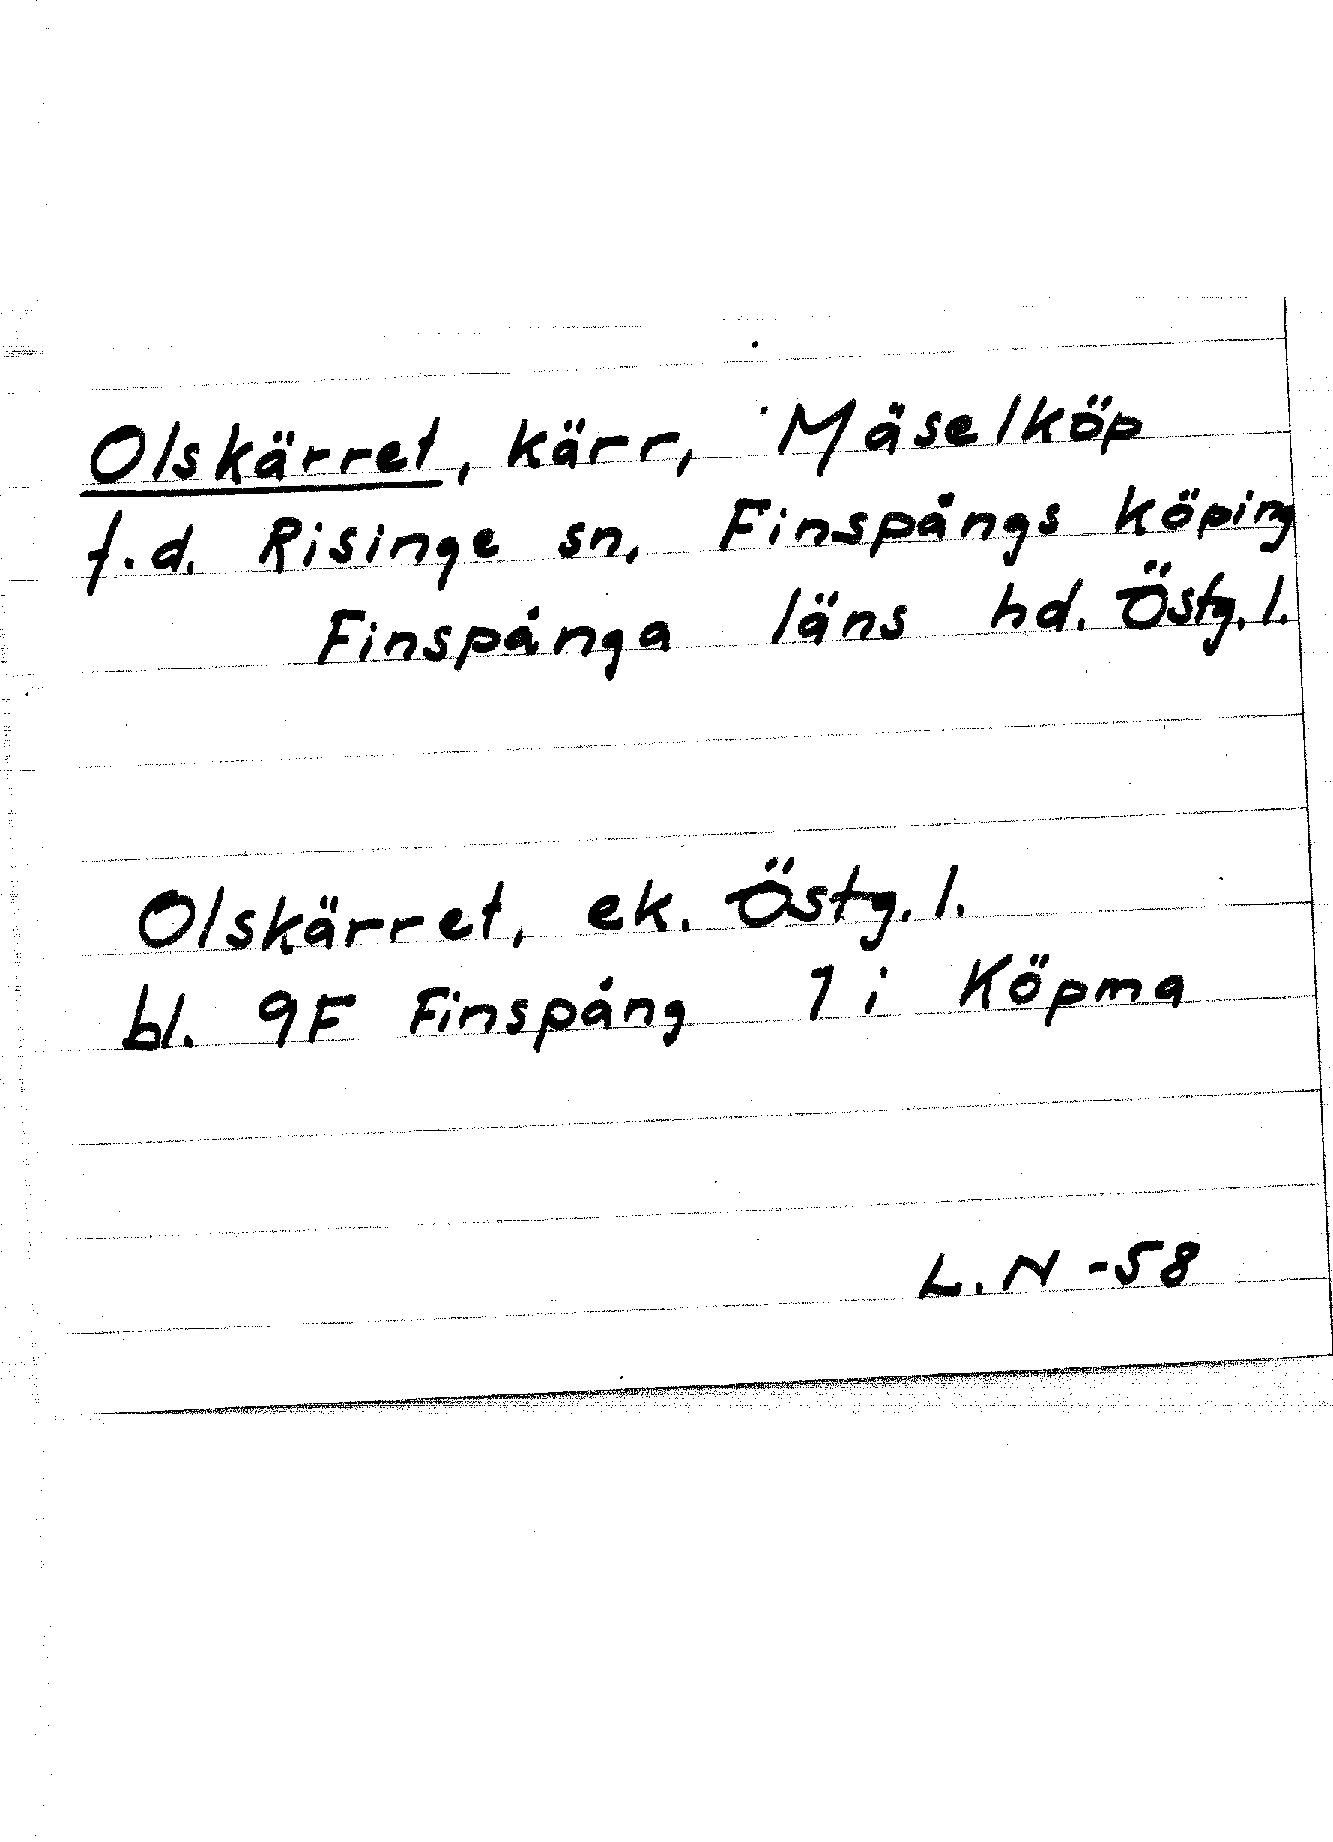 Olskärret, kärr, Mäselköp
f.d. Risinge sn, Finspångs köping
Finspånga läns hd. Östg.l.
Olskärret, ek. Östg.l.
bl. 9F Finspång 7 i Köpma
L.N -58